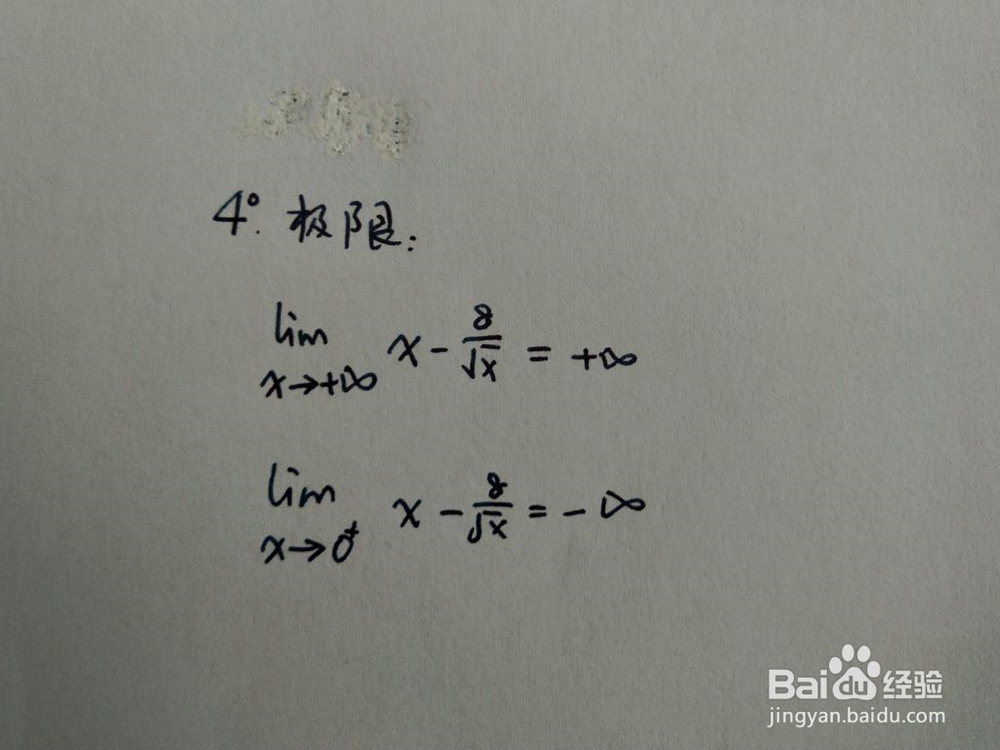 4°. 极限:
lim x→+∞ x - 8/√x = +∞
lim x→0⁺ x - 8/√x = -∞
Baidu 经验
jingyan.baidu.com